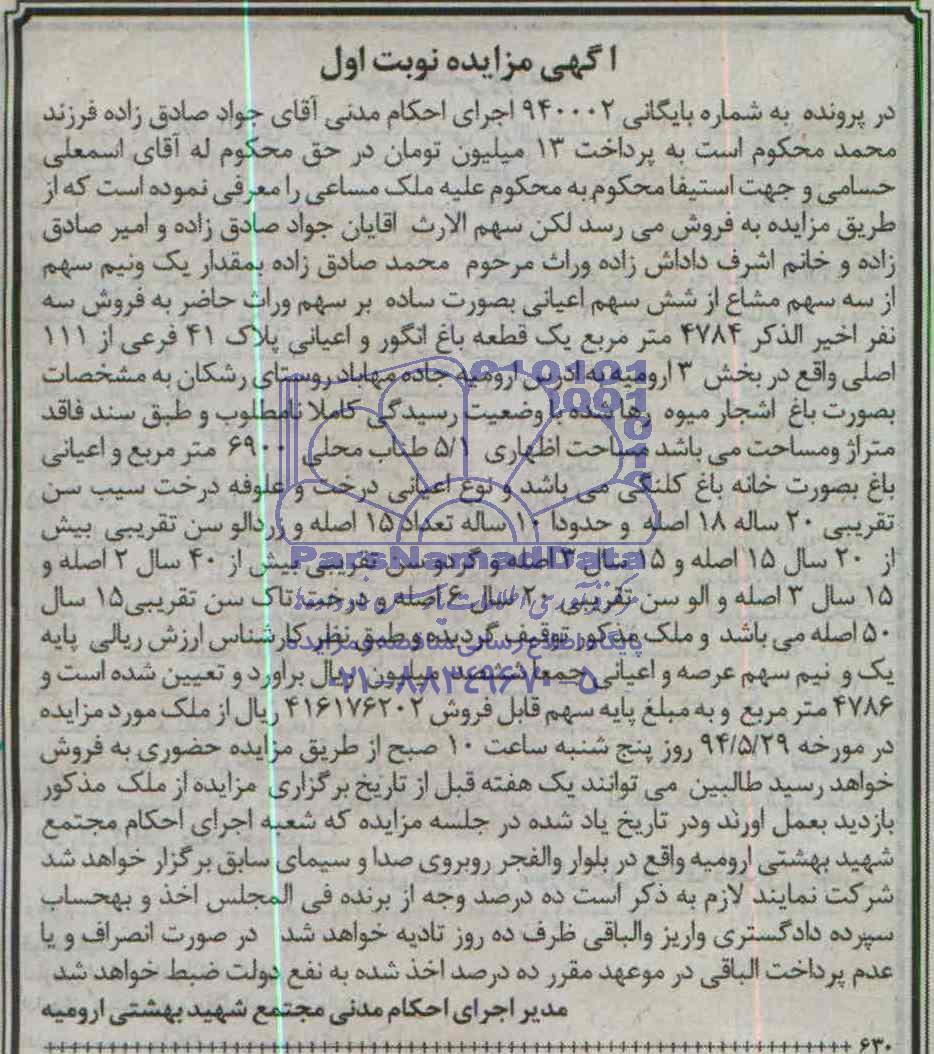 اگهی مزایده نوبت اول
در پرونده به شماره بایگانی ۹۴۰۰۰۲ اجرای احکام مدنی آقای جواد صادق زاده فرزند
محمد محکوم است به پرداخت ۱۳ میلیون تومان در حق محکوم له آقای اسمعلی
حسامی و جهت استیفا محکوم به محکوم علیه ملک مساعی را معرفی نموده است که از
طریق مزایده به فروش می رسد لکن سهم الارث اقایان جواد صادق زاده و امیر صادق
زاده و خانم اشرف داداش زاده وراث مرحوم محمد صادق زاده بمقدار یک ونیم سهم
از سه سهم مشاع از شش سهم اعیانی بصورت ساده بر سهم وراث حاضر به فروش سه
نفر اخیر الذکر ۴۷۸۴ متر مربع یک قطعه باغ انگور و اعیانی پلاک ۴۱ فرعی از ۱۱۱
اصلی واقع در بخش ۳ ارومیه به ادرس ارومیه جاده مهاباد روستای رشکان به مشخصات
بصورت باغ اشجار میوه رها شده با وضعیت رسیدگی کاملا نامطلوب و طبق سند فاقد
متراژ ومساحت می باشد مساحت اظهاری ۵/۱ طناب محلی ۶۹۰۰ متر مربع و اعیانی
باغ بصورت خانه باغ کلنگی می باشد و نوع اعیانی درخت و علوفه درخت سیب سن
تقریبی ۲۰ ساله ۱۸ اصله و حدودا ۱۰ ساله تعداد ۱۵ اصله و زردالو سن تقریبی بیش
از ۲۰ سال ۱۵ اصله و ۱۵ سال ۳ اصله و گردو سن تقریبی بیش از ۴۰ سال ۲ اصله و
۱۵ سال ۳ اصله و الو سن تقریبی ۲۰ سال ۶ اصله و درخت تاک سن تقریبی ۱۵ سال
۵۰ اصله می باشد و ملک مذکور توقیف گردیده و طبق نظر کارشناس ارزش ریالی پایه
یک و نیم سهم عرصه و اعیانی جمعا ششصد میلیون ریال براورد و تعیین شده است و
۴۷۸۶ متر مربع و به مبلغ پایه سهم قابل فروش ۴۱۶۱۷۶۲۰۲ ریال از ملک مورد مزایده
در مورخه ۹۴/۵/۲۹ روز پنج شنبه ساعت ۱۰ صبح از طریق مزایده حضوری به فروش
خواهد رسید طالبین می توانند یک هفته قبل از تاریخ برگزاری مزایده از ملک مذکور
بازدید بعمل اورند ودر تاریخ یاد شده در جلسه مزایده که شعبه اجرای احکام مجتمع
شهید بهشتی ارومیه واقع در بلوار والفجر روبروی صدا و سیمای سابق برگزار خواهد شد
شرکت نمایند لازم به ذکر است ده درصد وجه از برنده فی المجلس اخذ و بهحساب
سپرده دادگستری واریز والباقی ظرف ده روز تادیه خواهد شد در صورت انصراف و یا
عدم پرداخت الباقی در موعهد مقرر ده درصد اخذ شده به نفع دولت ضبط خواهد شد
مدیر اجرای احکام مدنی مجتمع شهید بهشتی ارومیه
۶۳۰
ParsNamadData
پایگاه اطلاع رسانی مناقصه و مزایده
۰۲۱-۸۸۳۴۹۶۷۰-۵